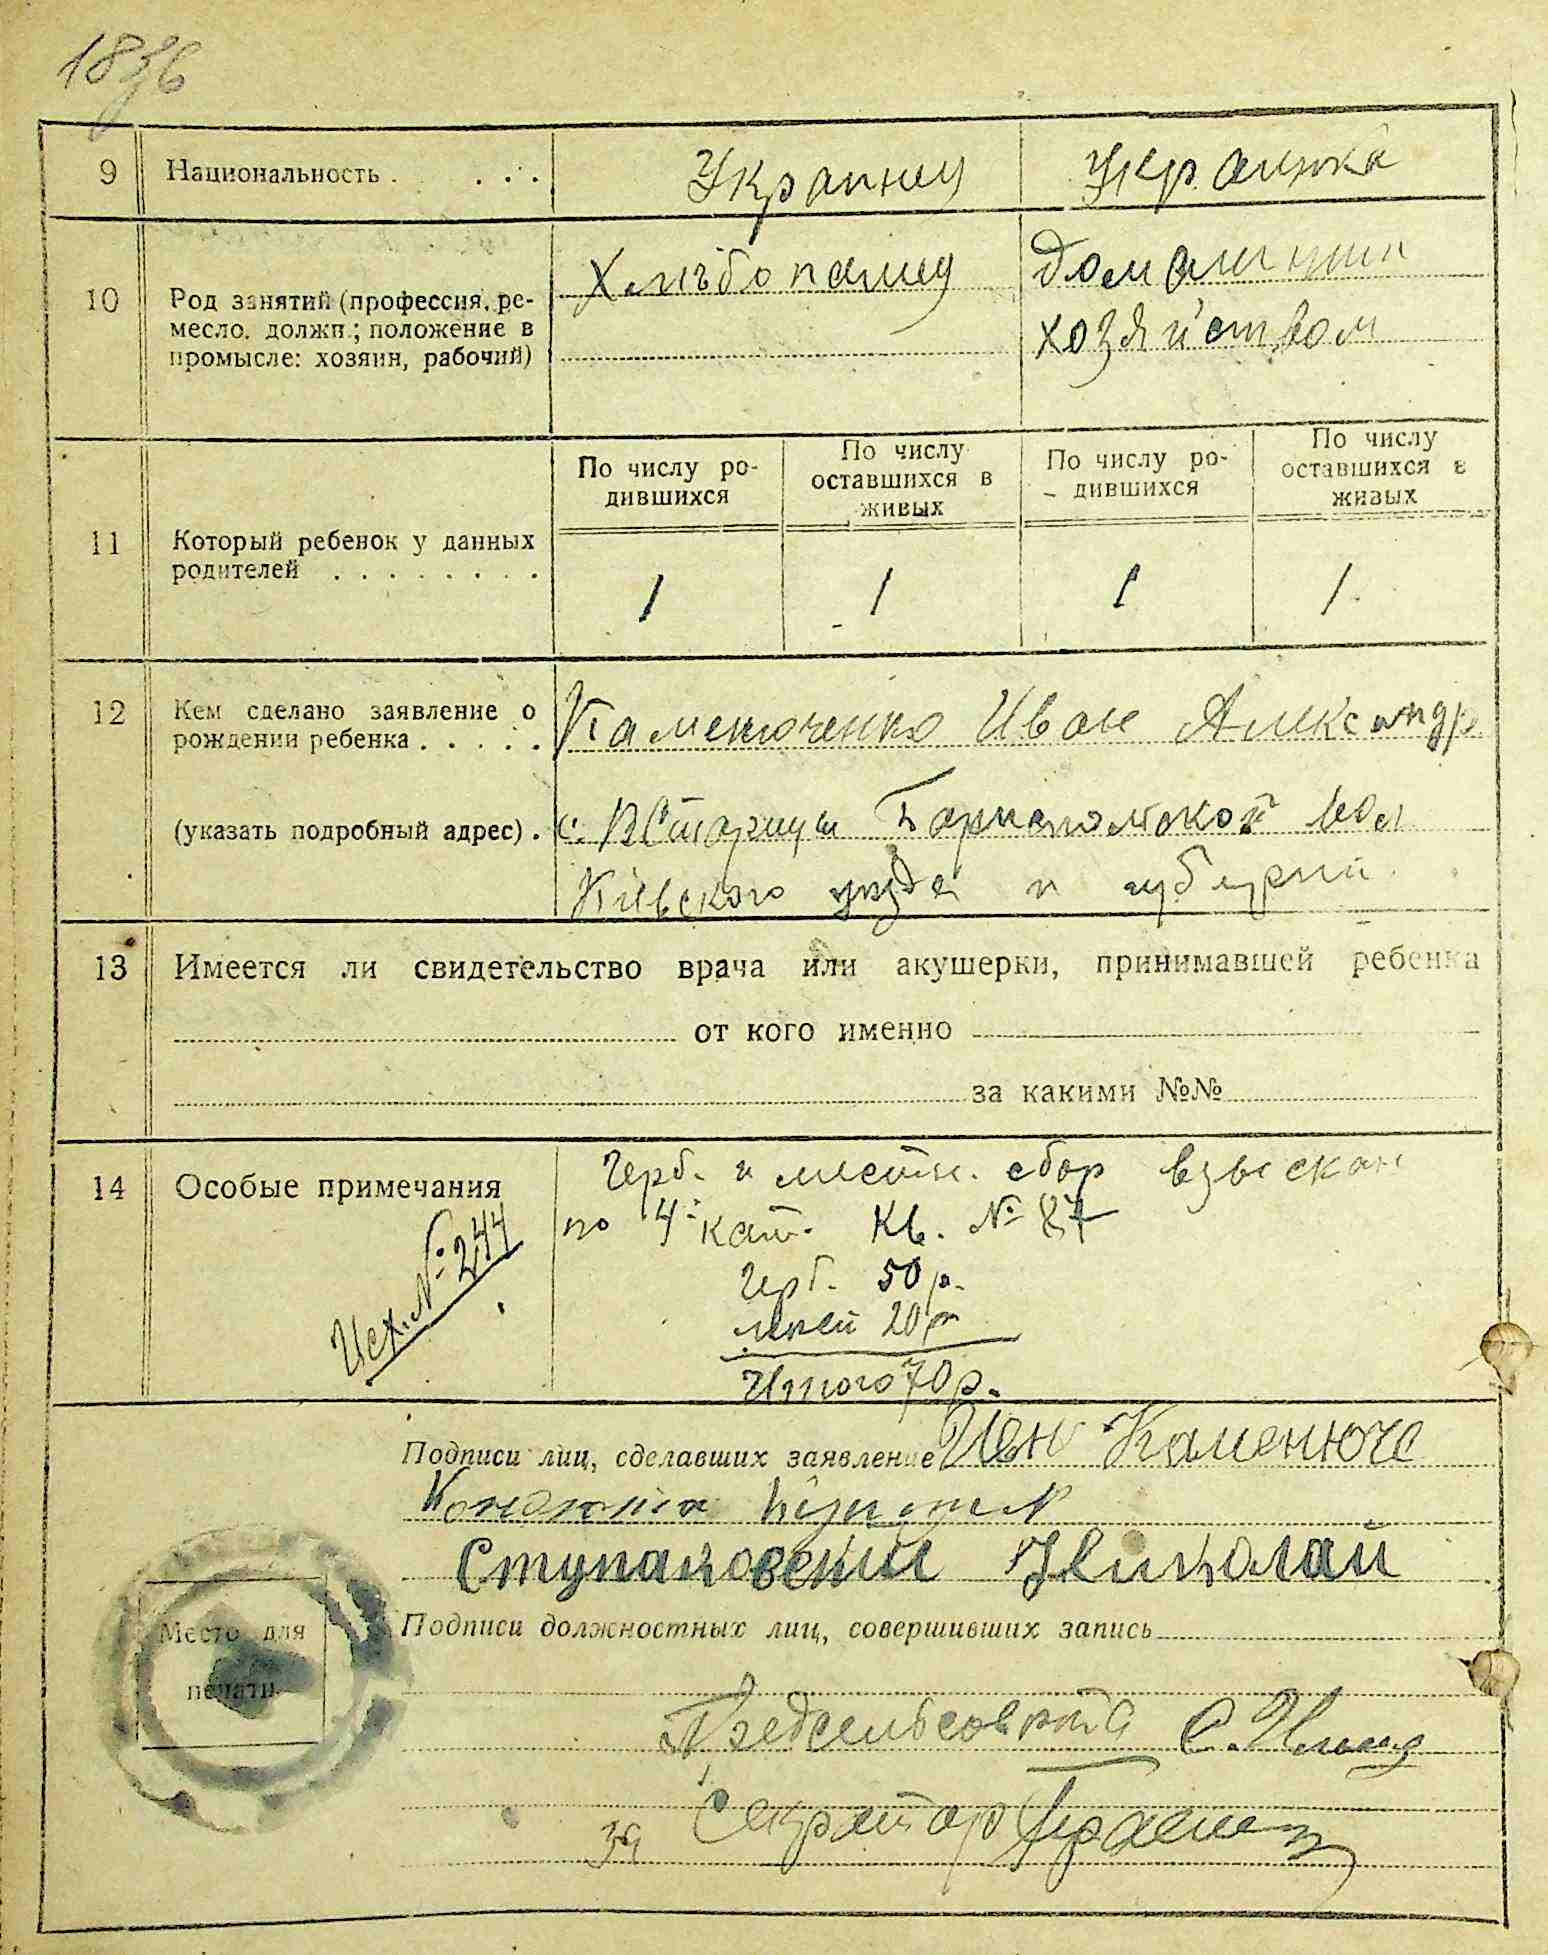 1836
9 Национальность . . . . Украинец Украинка
10 Род занятий (профессия, ре-
месло, должн.; положение в
промысле: хозяин, рабочий)
Хлѣбопашец
Домашним
хозяйством
11 Который ребенок у данных
родителей . . . . . . . .
По числу ро-
дившихся
По числу
оставшихся в
живых
По числу ро-
дившихся
По числу
оставшихся в
живых
1 1 1 1
12 Кем сделано заявление о
рождении ребенка . . . . .
Каменюченко Иван Александр.
(указать подробный адрес) .
с. Борисполской вол
Киевского уезда и губернии.
13 Имеется ли свидетельство врача или акушерки, принимавшей ребенка
от кого именно
за какими №№
14 Особые примечания
Исх. № 244
Герб. и местн. сбор взыскан
по 4й кат. Кв. № 87
Герб. 50 р.
20 р
Итого 70 р.
Подписи лиц, сделавших заявление Ивн Каменюче
Ступаковский Николай
Подписи должностных лиц, совершивших запись
Место для
печати
Предсельсовета
за Секретар